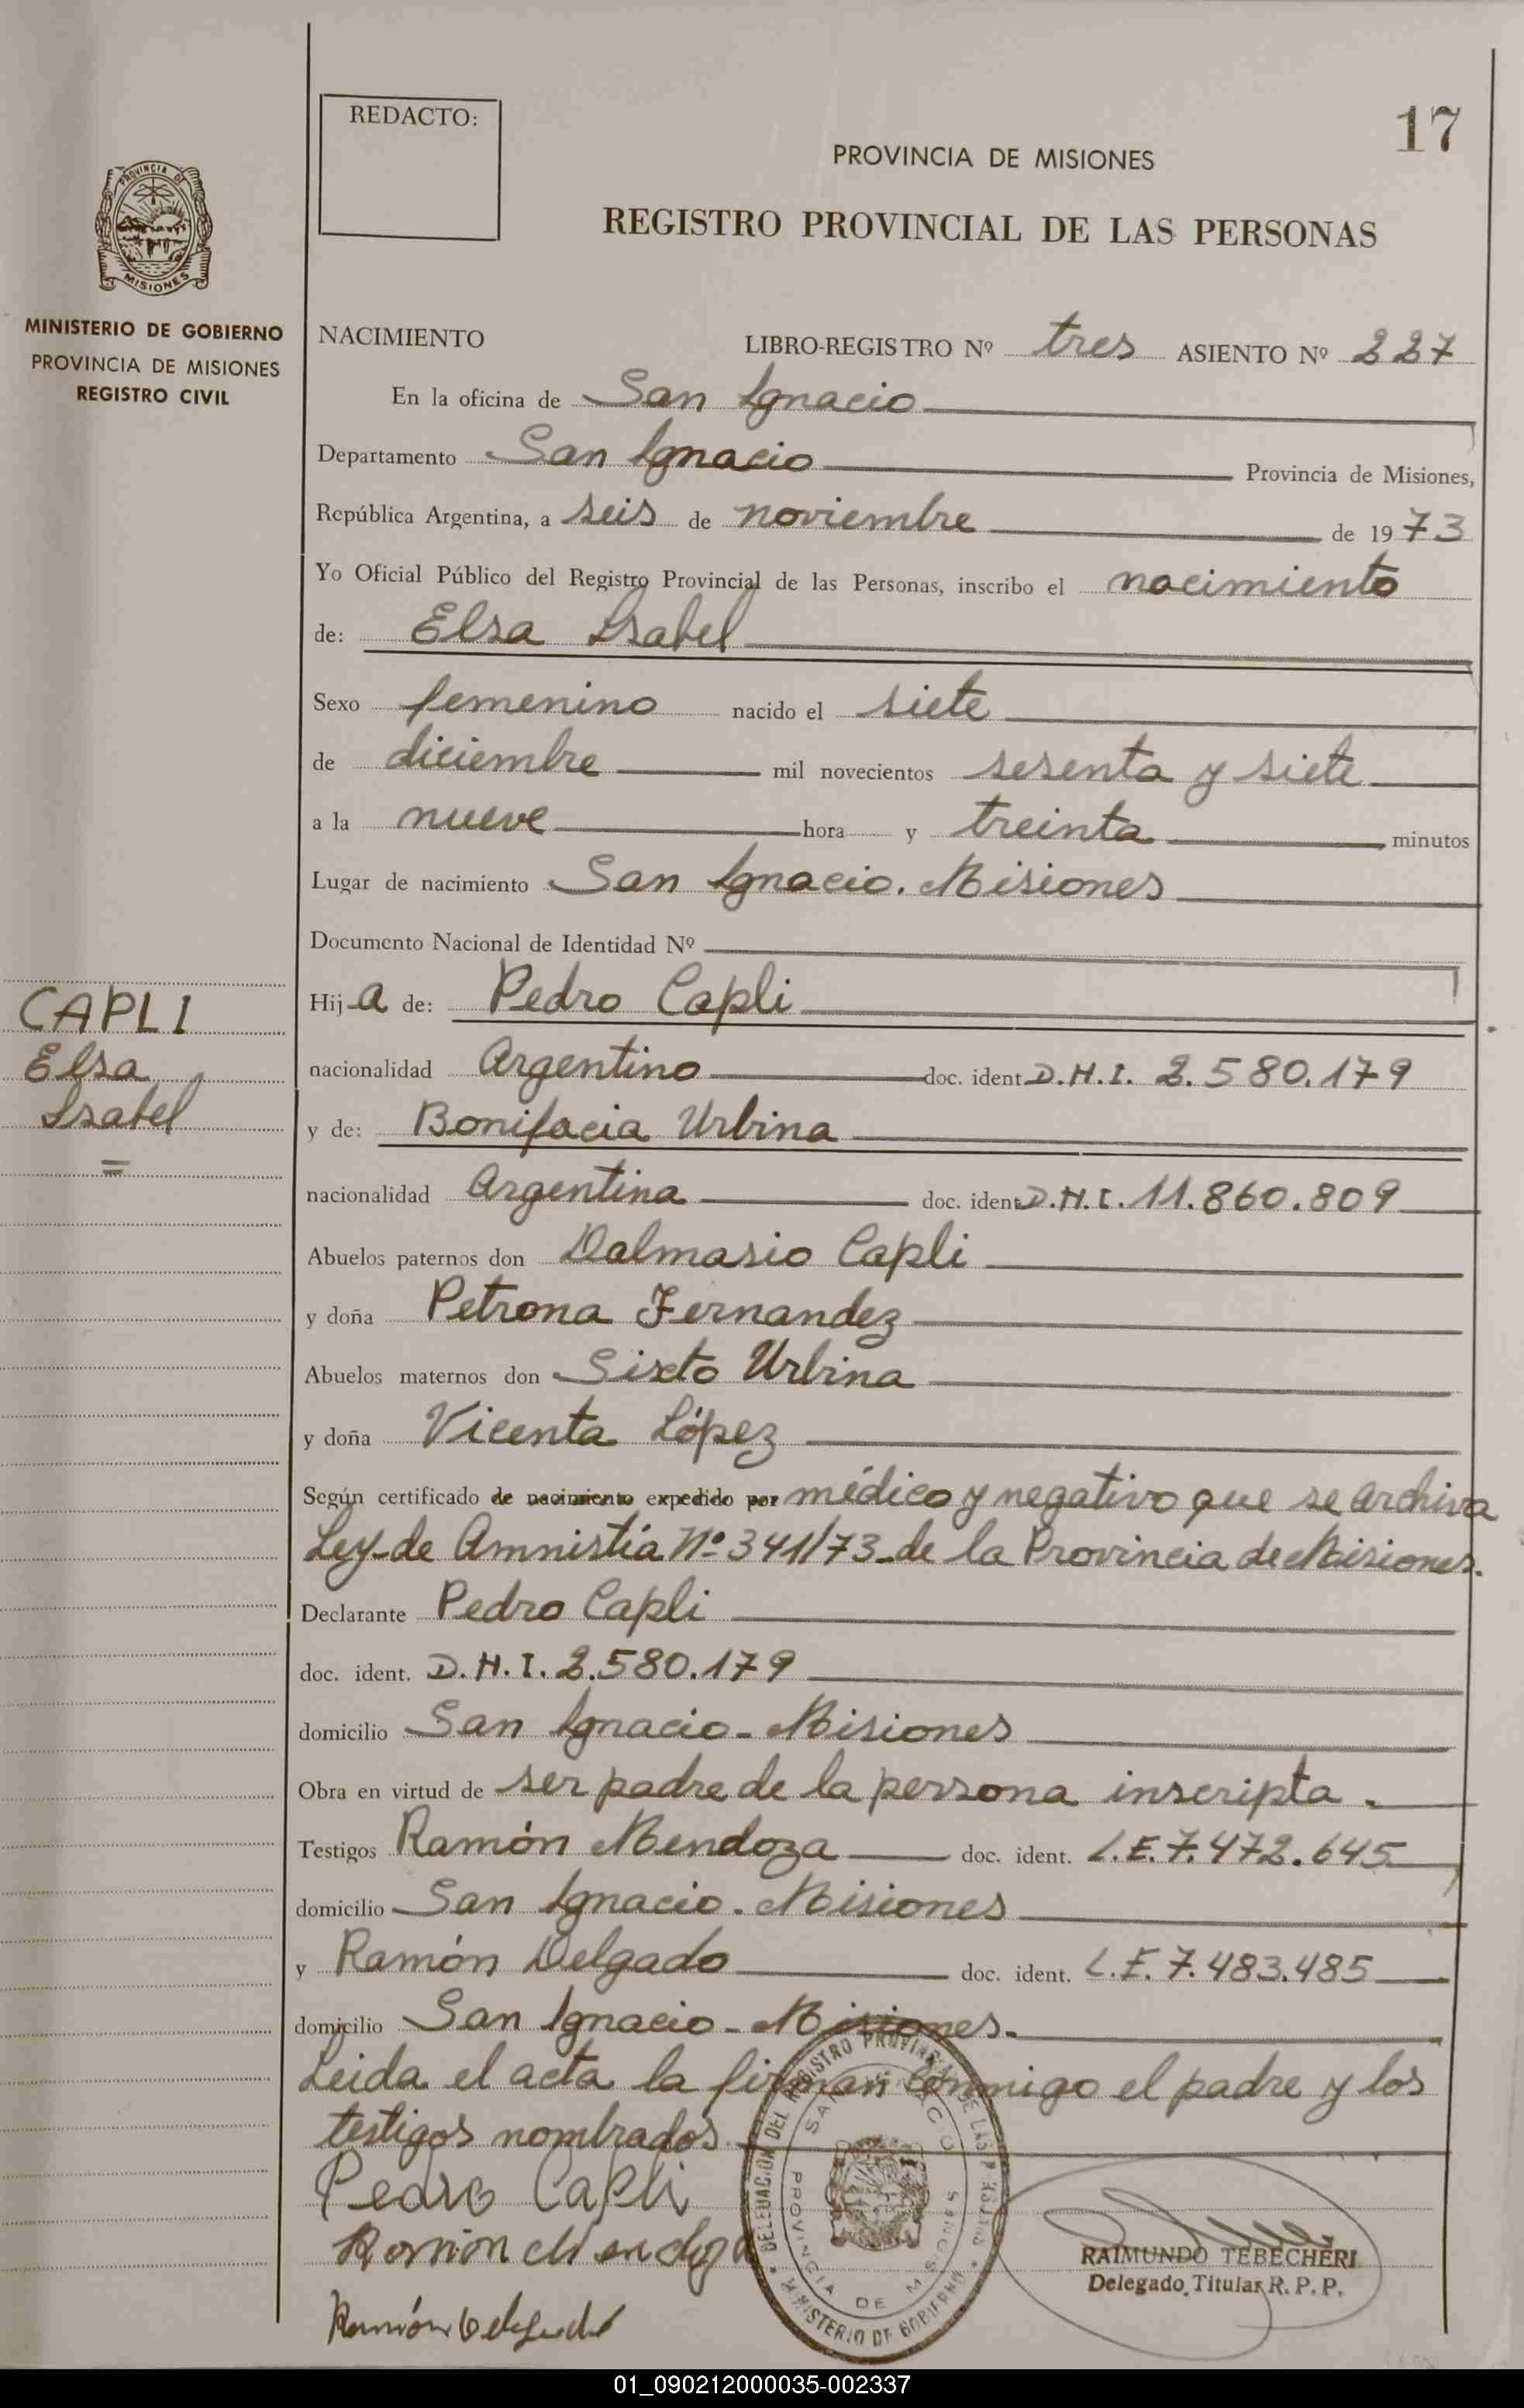 REDACTO:
17
PROVINCIA DE MISIONES
REGISTRO PROVINCIAL DE LAS PERSONAS
PROVINCIA DE
MISIONES
MINISTERIO DE GOBIERNO
PROVINCIA DE MISIONES
REGISTRO CIVIL
NACIMIENTO LIBRO-REGISTRO Nº tres ASIENTO Nº 227
En la oficina de San Ignacio
Departamento San Ignacio Provincia de Misiones,
República Argentina, a seis de noviembre de 1973
Yo Oficial Público del Registro Provincial de las Personas, inscribo el nacimiento
de: Elsa Isabel
Sexo femenino nacido el siete
de diciembre mil novecientos sesenta y siete
a la nueve hora y treinta minutos
Lugar de nacimiento San Ignacio. Misiones
Documento Nacional de Identidad Nº
CAPLI
Elsa
Isabel
=
Hij-a de: Pedro Capli
nacionalidad Argentino doc. ident. D.N.I. 2.580.179
y de: Bonifacia Urbina
nacionalidad Argentina doc. ident. D.N.I. 11.860.809
Abuelos paternos don Dalmasio Capli
y doña Petrona Fernandez
Abuelos maternos don Sixto Urbina
y doña Vicenta López
Según certificado de nacimiento expedido por médico y negativo que se archiva
Ley de Amnistía Nº 341/73 de la Provincia de Misiones.
Declarante Pedro Capli
doc. ident. D.N.I. 2.580.179
domicilio San Ignacio - Misiones
Obra en virtud de ser padre de la persona inscripta.
Testigos Ramón Mendoza doc. ident. L.E. 7.472.645
domicilio San Ignacio. Misiones
y Ramón Delgado doc. ident. L.E. 7.483.485
domicilio San Ignacio - Misiones.
Leida el acta la firman conmigo el padre y los
testigos nombrados.
Pedro Capli
Ramón Mendoza
Ramón Delgado
DELEGACION DEL REGISTRO PROVINCIAL DE LAS PERSONAS
SAN IGNACIO
PROVINCIA DE MISIONES
MINISTERIO DE GOBIERNO
RAIMUNDO TEBECHERI
Delegado Titular R. P. P.
01_090212000035-002337